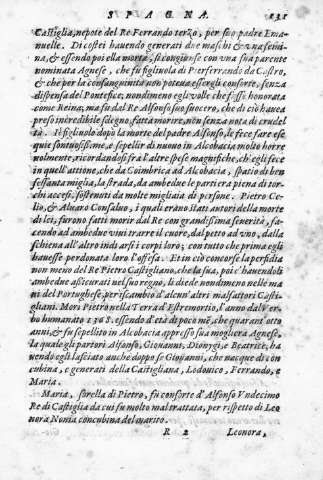 SPAGNA. 131
Castiglia, nepote del Re Ferrando terzo, per suo padre Ema-
nuelle. Di costei hauendo generati due maschi & vna femi-
na, & essendo poi ella morta, si congiunse con vna sua parente
nominata Agnese, che fu figliuola di Pierferrando da Castro,
& che per la consanguinità non poteua essergli consorte, senza
dispensa del Pontefice; nondimeno egli volle che fosse honorata
come Reina; ma fu dal Re Alfonso suo suocero, che di ciò hauea
preso incredibile sdegno, fatta morire, non senza nota di crudel
tà. Il figliuolo dopo la morte del padre Alfonso, le fece fare es e
quie sontuosissime, e sepellir di nuouo in Alcobacia molto honore
uolmente, ricordandosi frà l'altre spese magnifiche, ch'egli fece
in quell'attione, che da Coimbrica ad Alcobacia, spatio di ben
sessanta miglia, la strada, da ambedue le parti era piena di tor-
chi accesi, sostenuti da molte migliaia di persone. Pietro Ce-
lio, & Aluaro Consaluo, i quali erano stati autori della morte
di lei, furono fatti morir dal Re con grandissima seuerità, fa-
cendo ad ambedue viui trarre il cuore, dal petto ad vno, dalla
schiena all'altro indi arsi i corpi loro; con tutto che prima egli
hauesse perdonata loro l'offesa. Et in ciò concorse la perfidia
non meno del Re Pietro Castigliano, che la sua, poi c'hauendoli
ambedue assicurati nel suo regno, li diede nondimeno nelle ma
ni del Portughese, per iscambio d'alcun'altri malfattori Casti-
gliani. Morì Pietro nella Terra d'Estremortio, l'anno dal Ver-
bo humanato 1368. essendo d'età di poco meno, che quarant'otto
anni, & fu sepellito in Alcobacia appresso sua mogliera Agnese,
la quale gli partorì Alfonso, Giouanni, Dionygi, e Beatrice; ha
uendo egli lasciato anche doppo se Giouanni, che nacque di con
cubina, e generati della Castigliana, Lodouico, Ferrando, e
Maria.
Maria, sorella di Pietro, fù consorte d'Alfonso Vndecimo
Re di Castiglia da cui fu molto mal trattata, per rispetto di Leo
nora Nonia concubina del marito.
R 2 Leonora,